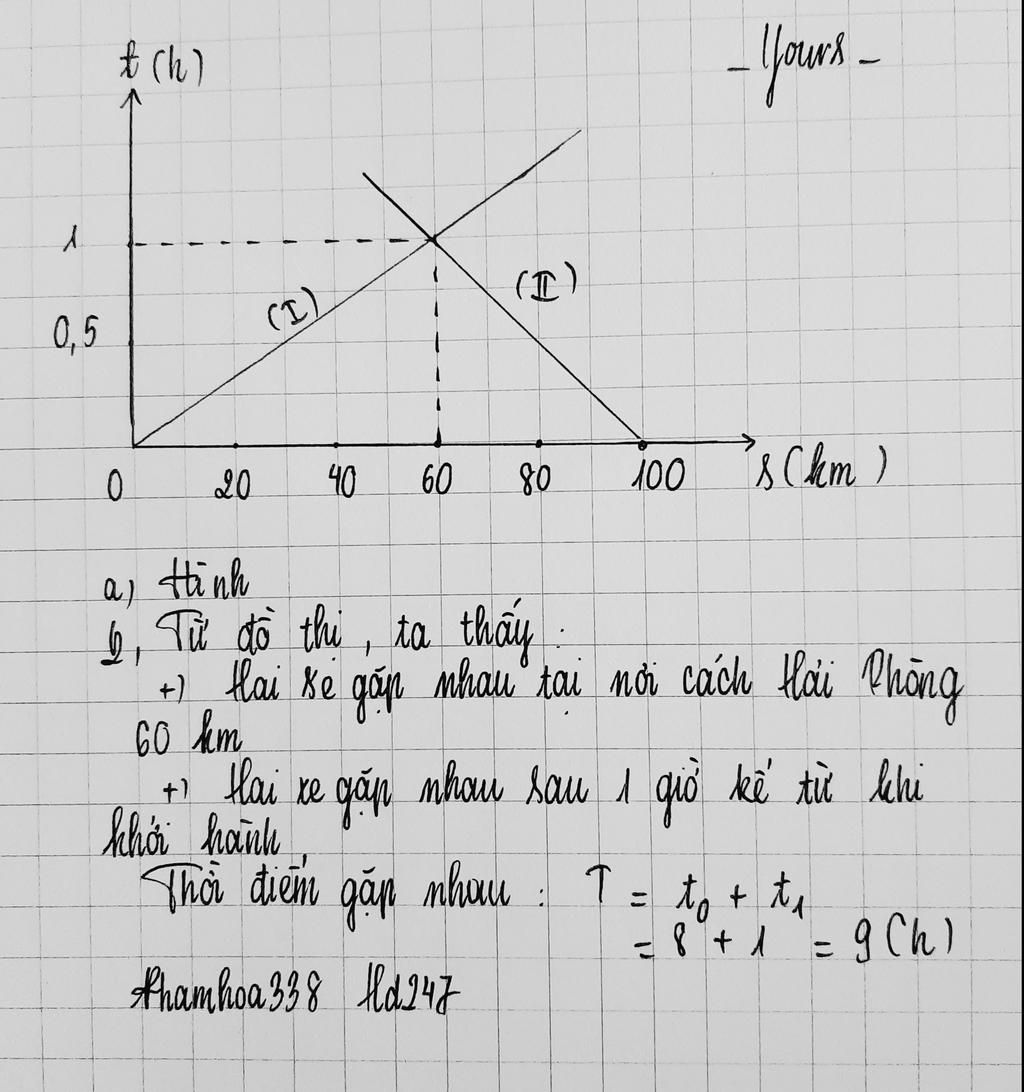 t (h)
- Yours -
1
(I)
(II)
0,5
0 20 40 60 80 100 s (km)
a) Hình
b, Từ đồ thi, ta thấy :
+) Hai xe gặp nhau tại nơi cách Hải Phòng
60 km
+) Hai xe gặp nhau sau 1 giờ kể từ khi
khởi hành
Thời điểm gặp nhau : T = t₀ + t₁
= 8 + 1 = 9 (h)
Phamhoa338 Hd247